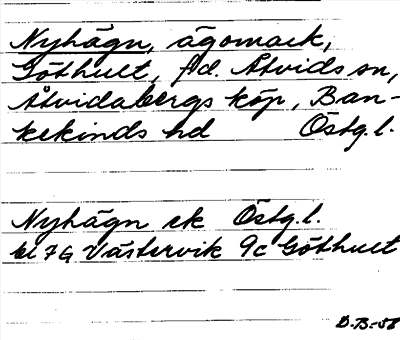 Nyhägn, ägomark,
Göthult, f.d. Åtvids sn,
Åtvidabergs köp, Ban-
kekinds hd Östg.l.
Nyhägn ek Östg.l.
bl 7G Västervik 9c Göthult
D.B.-58